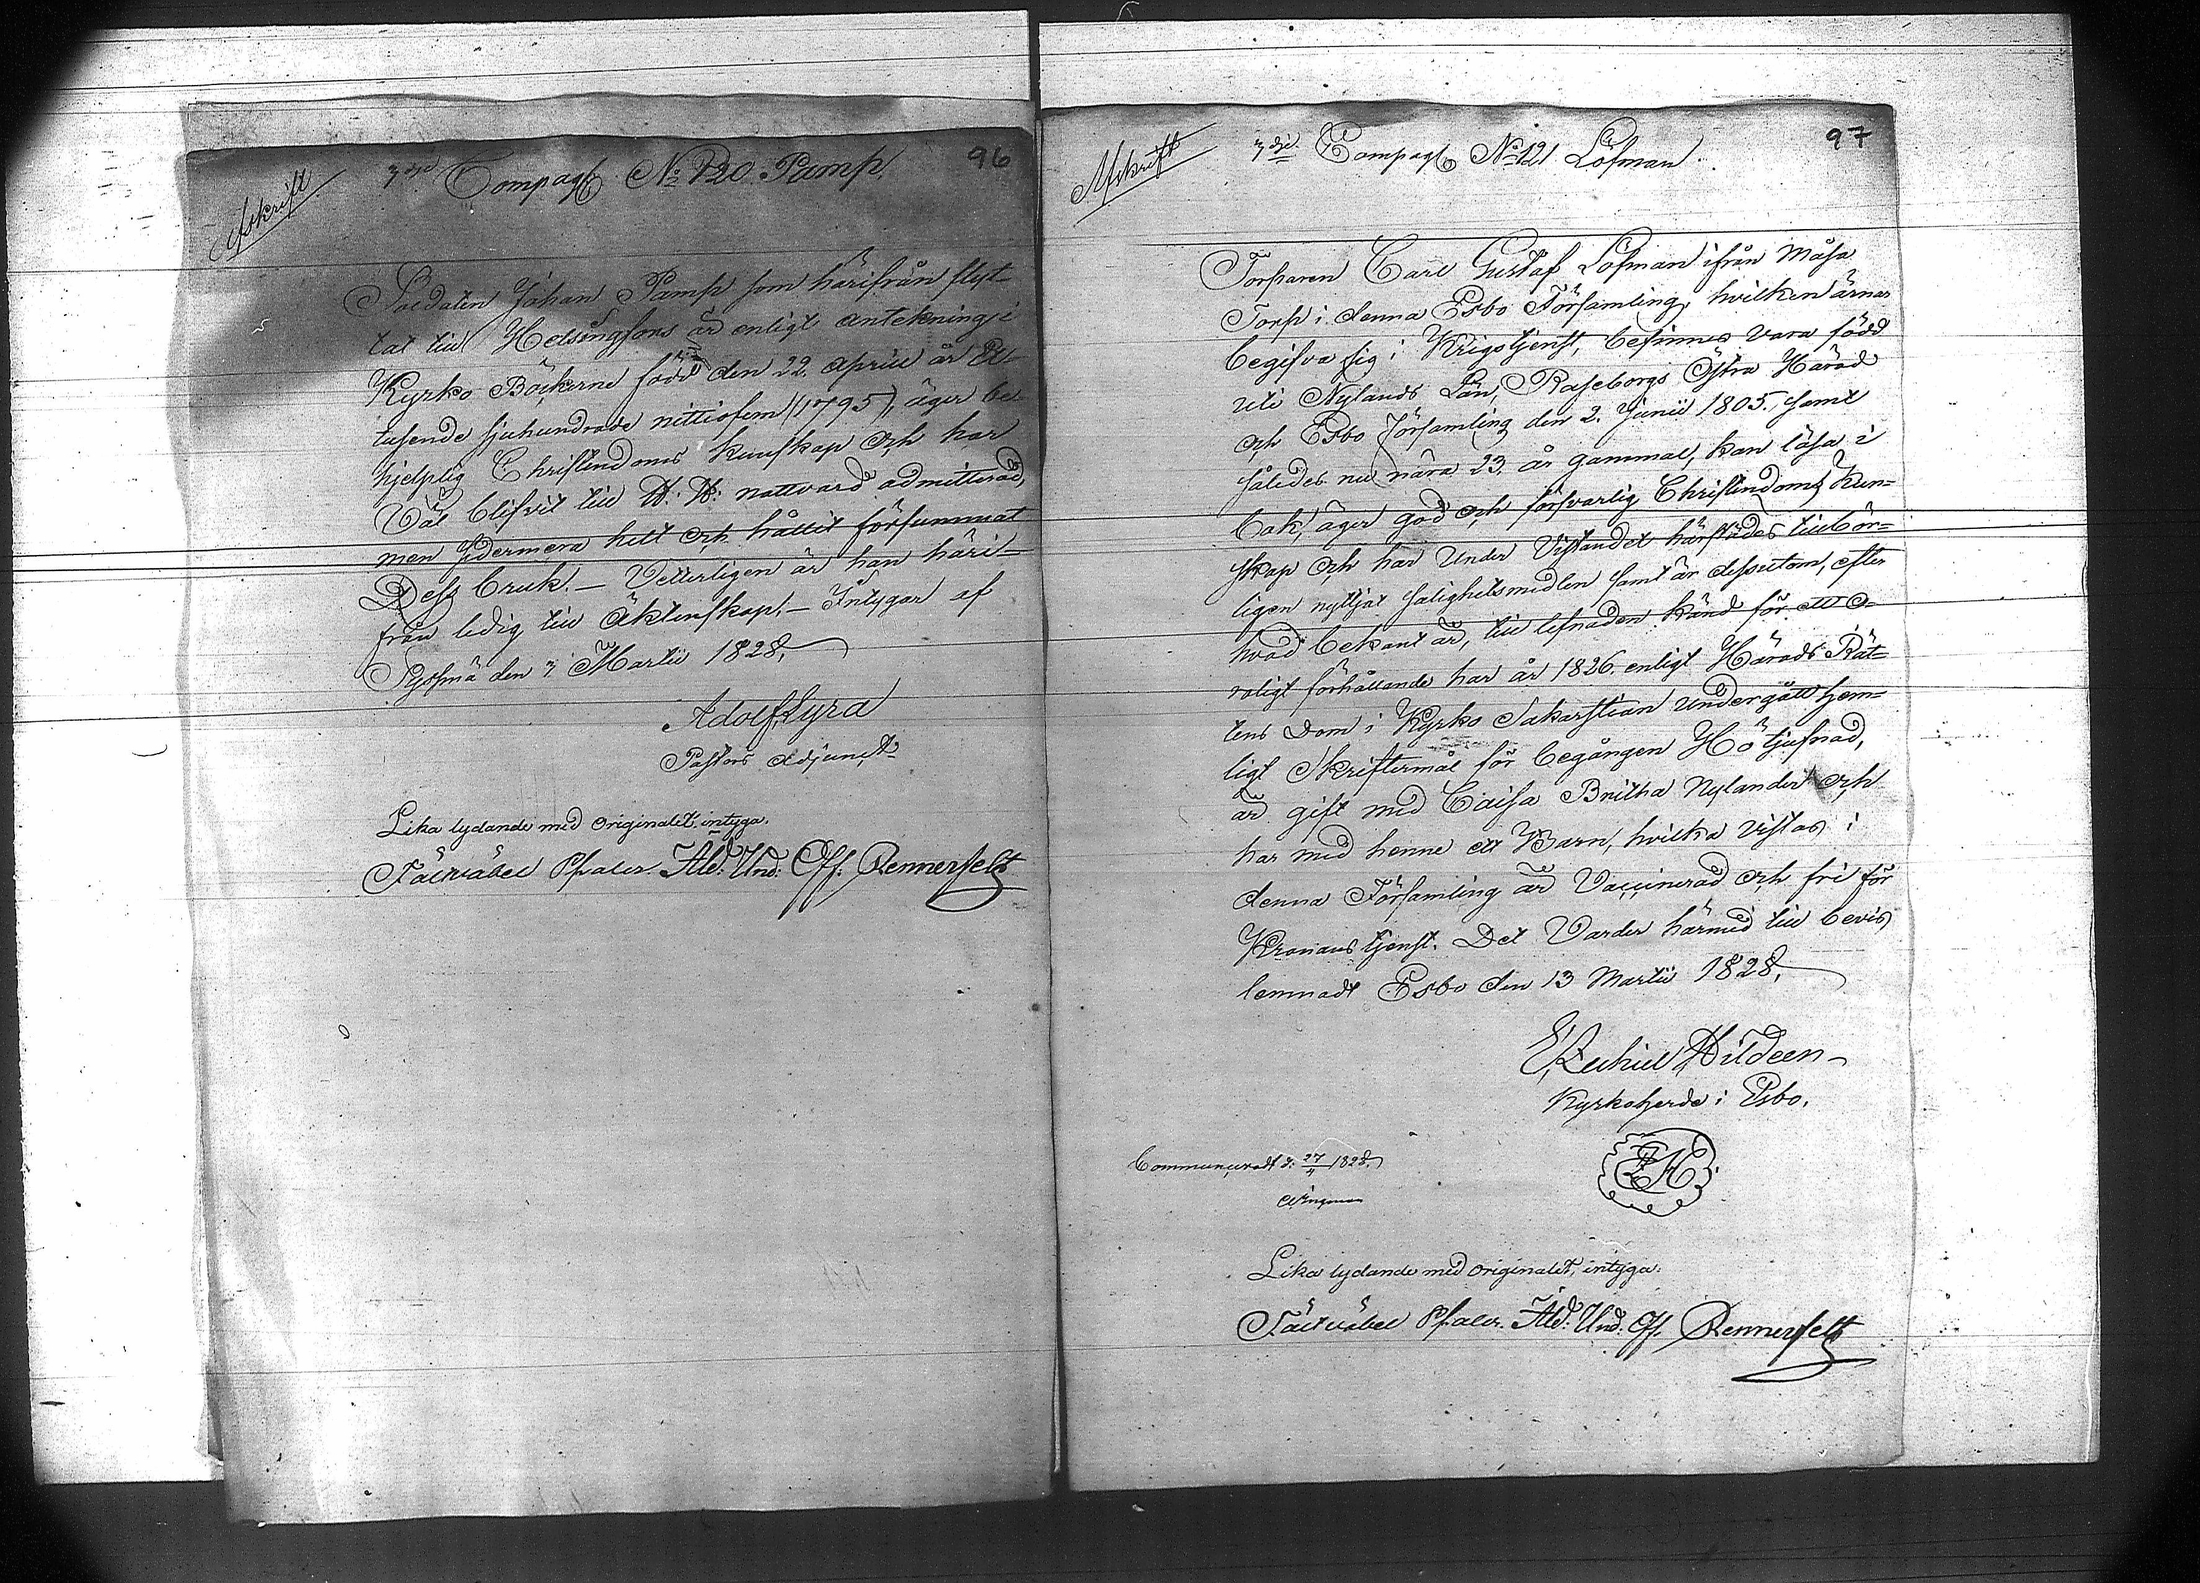 96
Afskrift
3dje Compagt No 120 Pamp.
Soldaten Johan Pamp som härifrån flyt-
tat till Helsingfors är enligt antekning i
Kyrko Böckerne född den 22 April år Et-
tusende sjuhundrade nittiofem (1795), äger be-
hjelplig Christendoms kunskap och har
Väl blifvit till H: H: nattvard admitterad,
men ydermera helt och hållit försummat
Dess bruk. — Vetterligen är han häri-
från ledig till Äktenskap. — Intygar af
Sysmä den 3 Martii 1828.
Adolf Lyra
Pastors Adjunct
Lika lydande med Originalet, intyga.
Fältväbel Pfaler. Äld: Und: Off: Rennerfelt
97
Afskrift
3dje Compagt No 121 Löfman
Torparen Carl Gustaf Löfman ifrån Måsa
Torp i denna Esbo Församling, hvilken ärnar
begifva sig i Krigstjenst, befinnes vara född
uti Nylands Län, Raseborgs Östra Härad
och Esbo församling den 2. Junii 1805. samt
således nu nära 23. år gammal, kan läsa i
bok, äger god och försvarlig Christendoms Kun-
skap och har Under Vistandet härstädes tillbör-
ligen nyttjat salighetsmedlen samt är dessutom, efter
hvad bekant är, till lefnaden känd för ett o-
roligt förhållande har år 1826. enligt Härads Rät-
tens Dom i Kyrko Sakarstian undergått hem-
ligt Skriftermål för begången Hö tjufnad,
är gift med Caisa Britha Nylander och
har med henne ett Barn, hvilka vistas i
denna Församling är Vaccinerad och fri för
Kronans tjenst. Det Varder härmed till bevis
lemnadt Esbo den 13 Martii 1828.
Ezechiel Hildeen
Kyrkoherde i Esbo.
EH
Communiceradt d: 27/4 1828.
Lika lydande med Originalet, intyga.
Fältväbel Pfaler. Äld: Und: Off. Rennerfelt